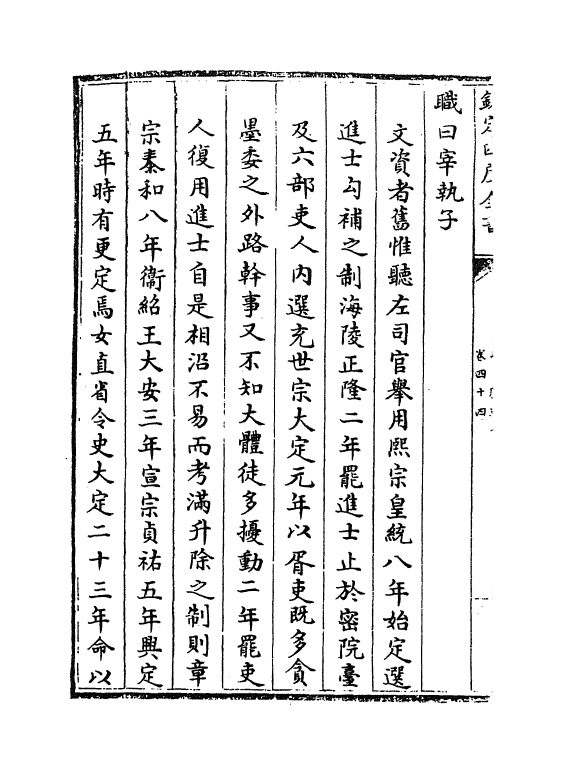 卷四十四
職曰宰執子
文資者舊惟聽左司官舉用熙宗皇統八年始定選
進士勾補之制海陵正隆二年罷進士止於密院臺
及六部吏人内選充世宗大定元年以胥吏既多貪
墨委之外路幹事又不知大體徒多擾動二年罷吏
人復用進士自是相沿不易而考滿升除之制則章
宗泰和八年衞紹王大安三年宣宗貞祐五年興定
五年時有更定焉女直省令史大定二十三年命以